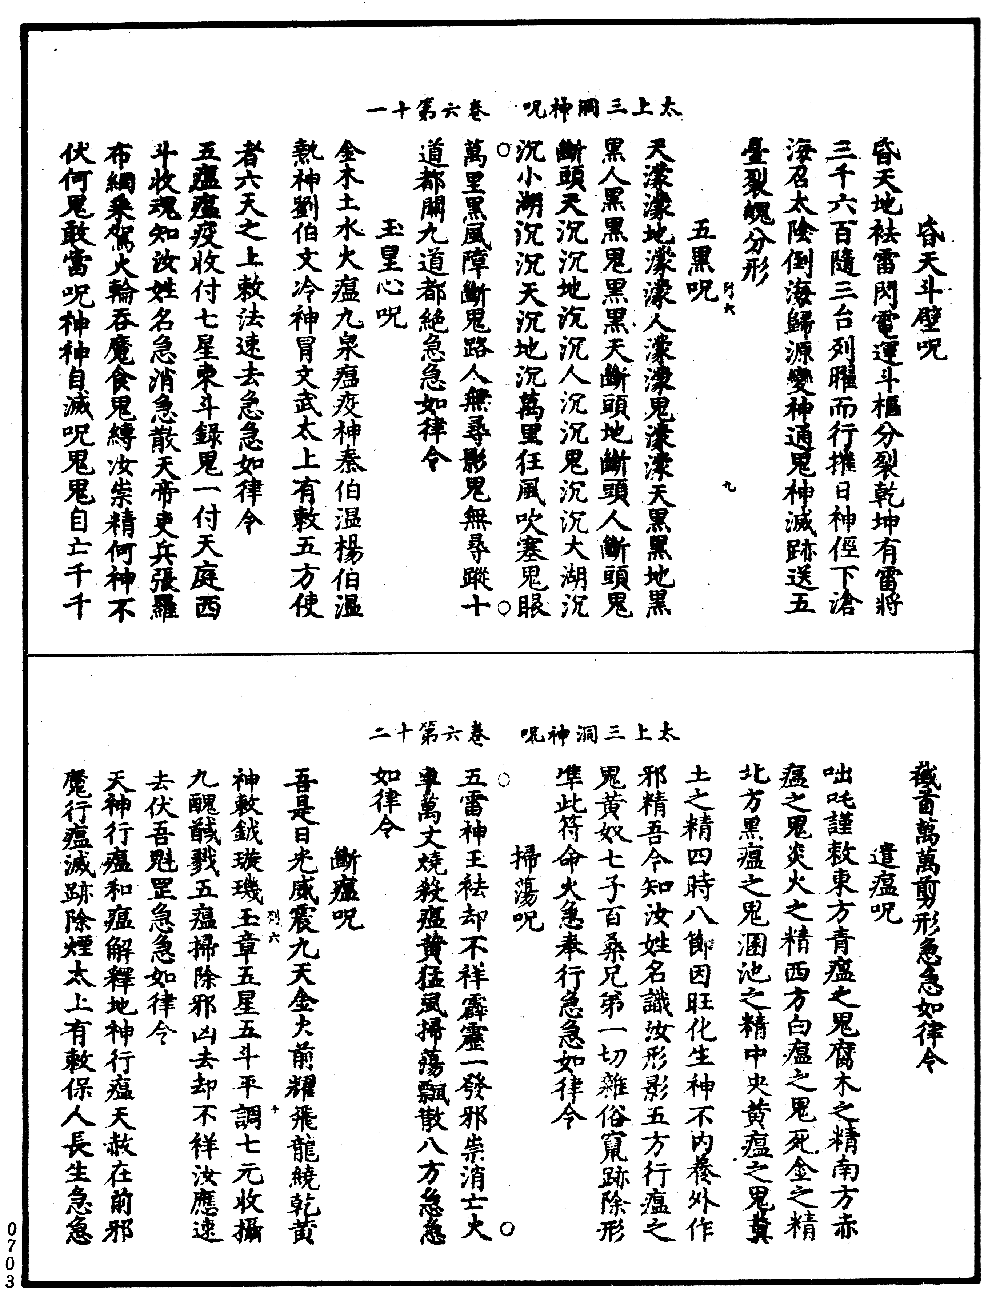 太上三洞神呪　卷六第十一
昏天斗壁呪
昏天地袪雷閃電運斗樞分裂乾坤有雷將
三千六百隨三台列曜而行摧日神徑下滄
海召太陰倒海歸源變神通鬼神滅跡送五
壘裂魄分形
五黑呪
列六
九
天濛濛地濛濛人濛濛鬼濛濛天黑黑地黑
黑人黑黑鬼黑黑天斷頭地斷頭人斷頭鬼
斷頭天沉沉地沉沉人沉沉鬼沉沉大湖沉
沉小湖沉沉天沉地沉萬里狂風吹塞鬼眼
萬里黑風障斷鬼路人無尋影鬼無尋蹤十
道都關九道都絕急急如律令
玉皇心呪
金木土水火瘟九泉瘟疫神秦伯溫楊伯溫
熱神劉伯文冷神冒文武太上有敕五方使
者六天之上敕法速去急急如律令
五瘟瘟疫收付七星東斗錄鬼一付天庭西
斗收魂知汝姓名急消急散天帝吏兵張羅
布網乘駕火輪吞魔食鬼縛汝祟精何神不
伏何鬼敢當呪神神自滅呪鬼鬼自亡千千
太上三洞神呪　卷六第十二
截首萬萬剪形急急如律令
遣瘟呪
咄吒謹敕東方青瘟之鬼腐木之精南方赤
瘟之鬼炎火之精西方白瘟之鬼死金之精
北方黑瘟之鬼溷池之精中央黃瘟之鬼糞
土之精四時八節因旺化生神不內養外作
邪精吾今知汝姓名識汝形影五方行瘟之
鬼黃奴七子百桑兄弟一切雜俗竄跡除形
準此符命火急奉行急急如律令
掃蕩呪
五雷神王袪却不祥霹靂一發邪祟消亡火
車萬丈燒殺瘟黃猛風掃蕩飄散八方急急
如律令
斷瘟呪
吾是日光威震九天金火前耀飛龍繞乾黃
列六
十
神敕鉞璇璣玉章五星五斗平調七元收攝
九醜馘戮五瘟掃除邪凶去却不祥汝應速
去伏吾魁罡急急如律令
天神行瘟和瘟解釋地神行瘟天赦在前邪
魔行瘟滅跡除煙太上有敕保人長生急急
0703